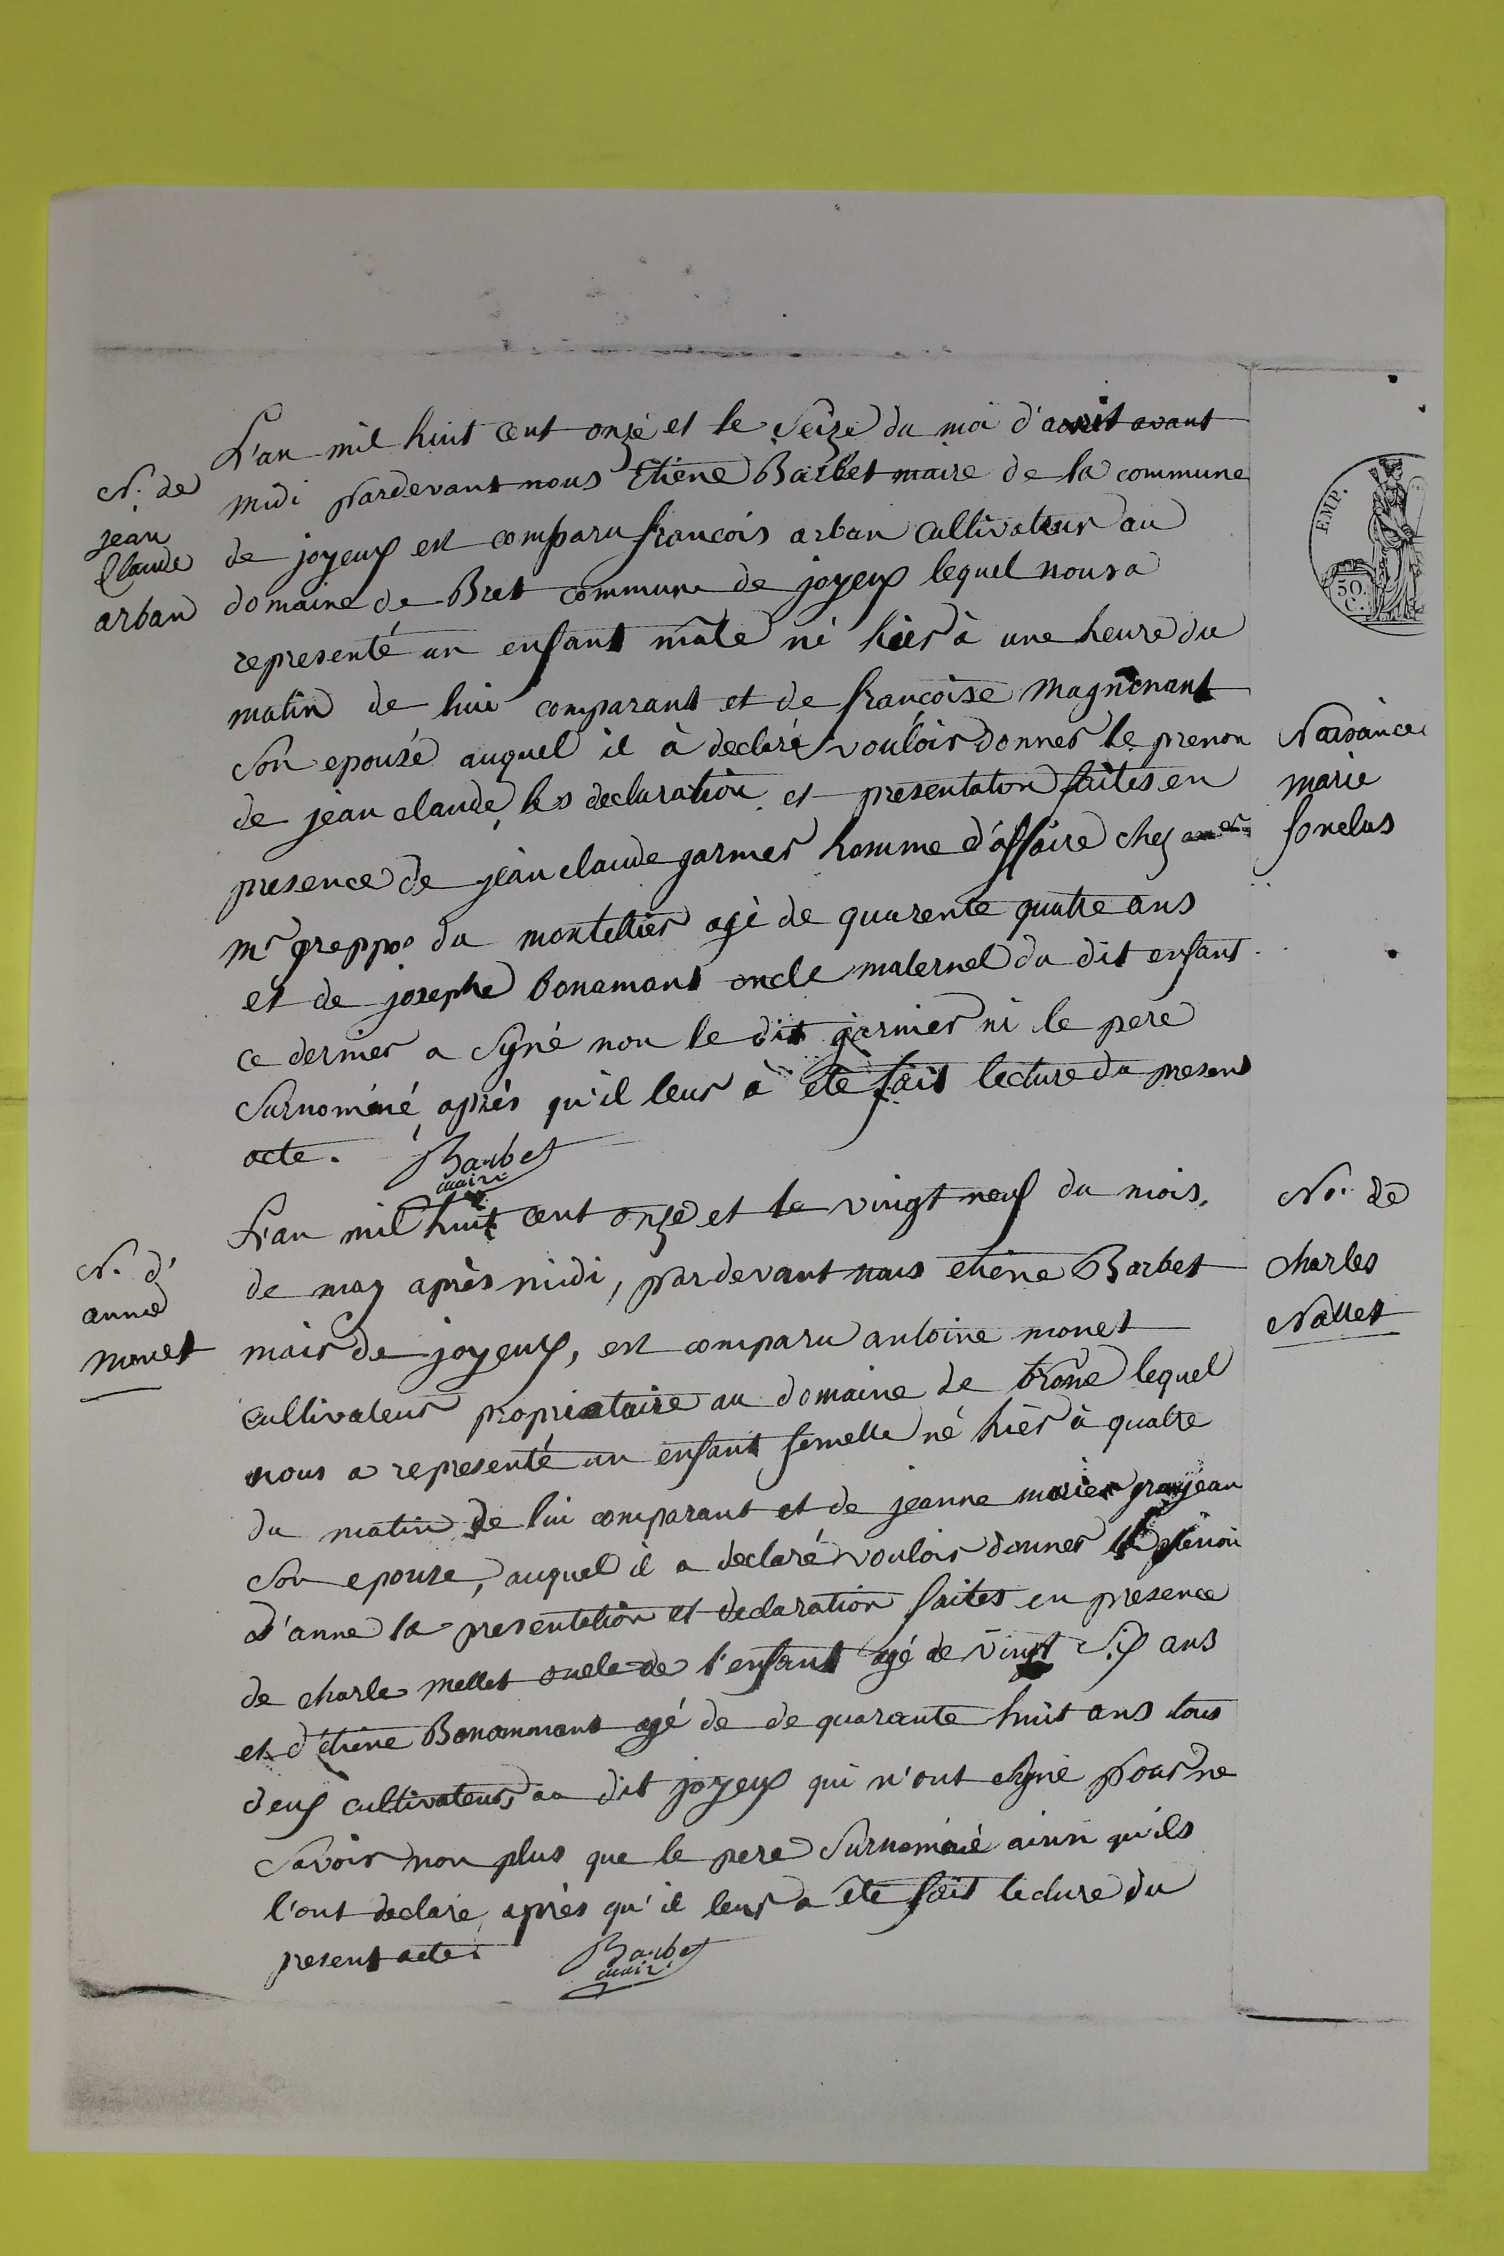 N. de
jean
Claude
arban
L'an mil huit cent onze et le Seize du moi d'avril avant
midi pardevant nous Etiene Barbet maire de la commune
de joyeux est comparu francois arban Cultivateur au
domaine de Bret commune de joyeux lequel nous a
representé un enfant mâle né hier à une heure du
matin de lui comparant et de françoise Magninant
Son epouse auquel il à declaré vouloir donner le prenon
de jean claude, les declaration et presentation faites en
presence de jean claude garnier homme d'affaire chez
Mr greppo du montellier agé de quarente quatre ans
et de josephe bonamant oncle maternel du dit enfant
ce dernier a Signé non le dit garnier ni le pere
Surnommé, après qu'il leur à été fait lecture du present
acte. Barbet
maire
N. d'
anne
monet
L'an mil huit cent onze et le vingt neuf du mois
de may après midi, pardevant nous etiene Barbet
mair de joyeux, est comparu antoine monet
cultivateur propriataire au domaine de trone lequel
nous a representé un enfant femelle né hièr à quatre
du matin de lui comparant et de jeanne marie granjean
Son epouse, auquel il a declaré vouloir donner le prénon
d'anne la presentation et declaration faites en presence
de charle mellet oncle de l'enfant agé de vingt Six ans
et d'etiene Bonammant agé de de quarante huit ans tous
deux cultivateurs au dit joyeux qui n'ont signé pour ne
Savoir non plus que le pere Surnommé ainsi qu'ils
l'ont declaré, après qu'il leur a été fait lecture du
present acte. Barbet
maire
EMP.
50
C.
Naisance
marie
fonclus
N. de
charles
Nallet